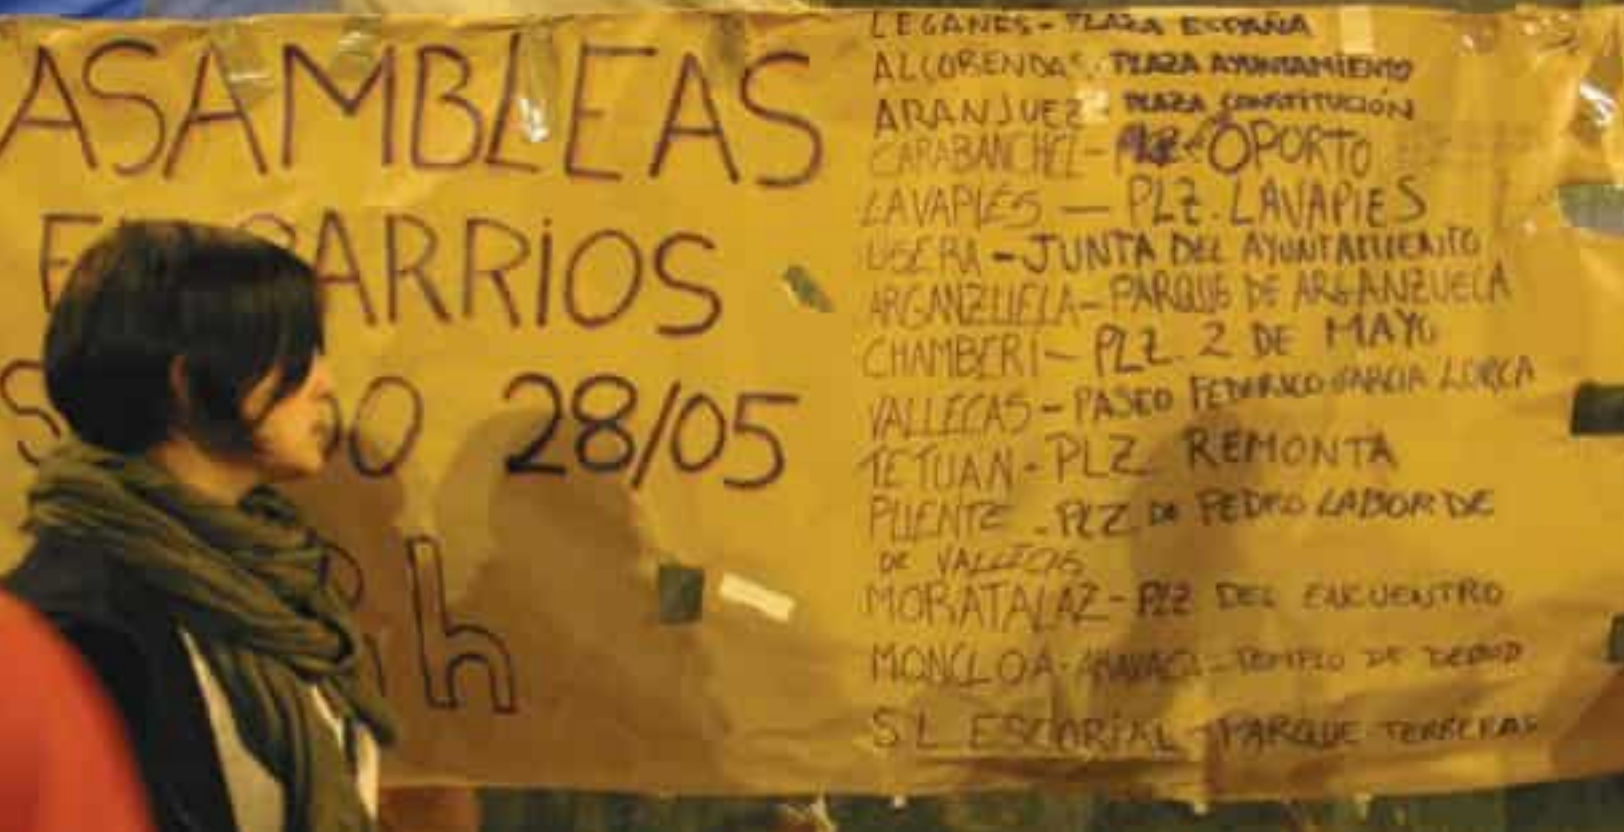 ASAMBLEAS
BARRIOS
28/05
h
LEGANÉS - PLAZA ESPAÑA
ALCOBENDAS - PLAZA AYUNTAMIENTO
ARANJUEZ - PLAZA CONSTITUCIÓN
CARABANCHEL - OPORTO
LAVAPIÉS — PLZ. LAVAPIES
USERA - JUNTA DEL AYUNTAMIENTO
ARGANZUELA - PARQUE DE ARGANZUELA
CHAMBERI - PLZ. 2 DE MAYO
VALLECAS - PASEO FEDERICO GARCIA LORCA
TETUAN - PLZ REMONTA
PUENTE - PLZ DE PEDRO LABORDE
DE VALLECAS
MORATALAZ - PLZ DEL ENCUENTRO
MONCLOA - ARAVACA - TEMPLO DE DEBOD
S L ESCORIAL - PARQUE TERREROS